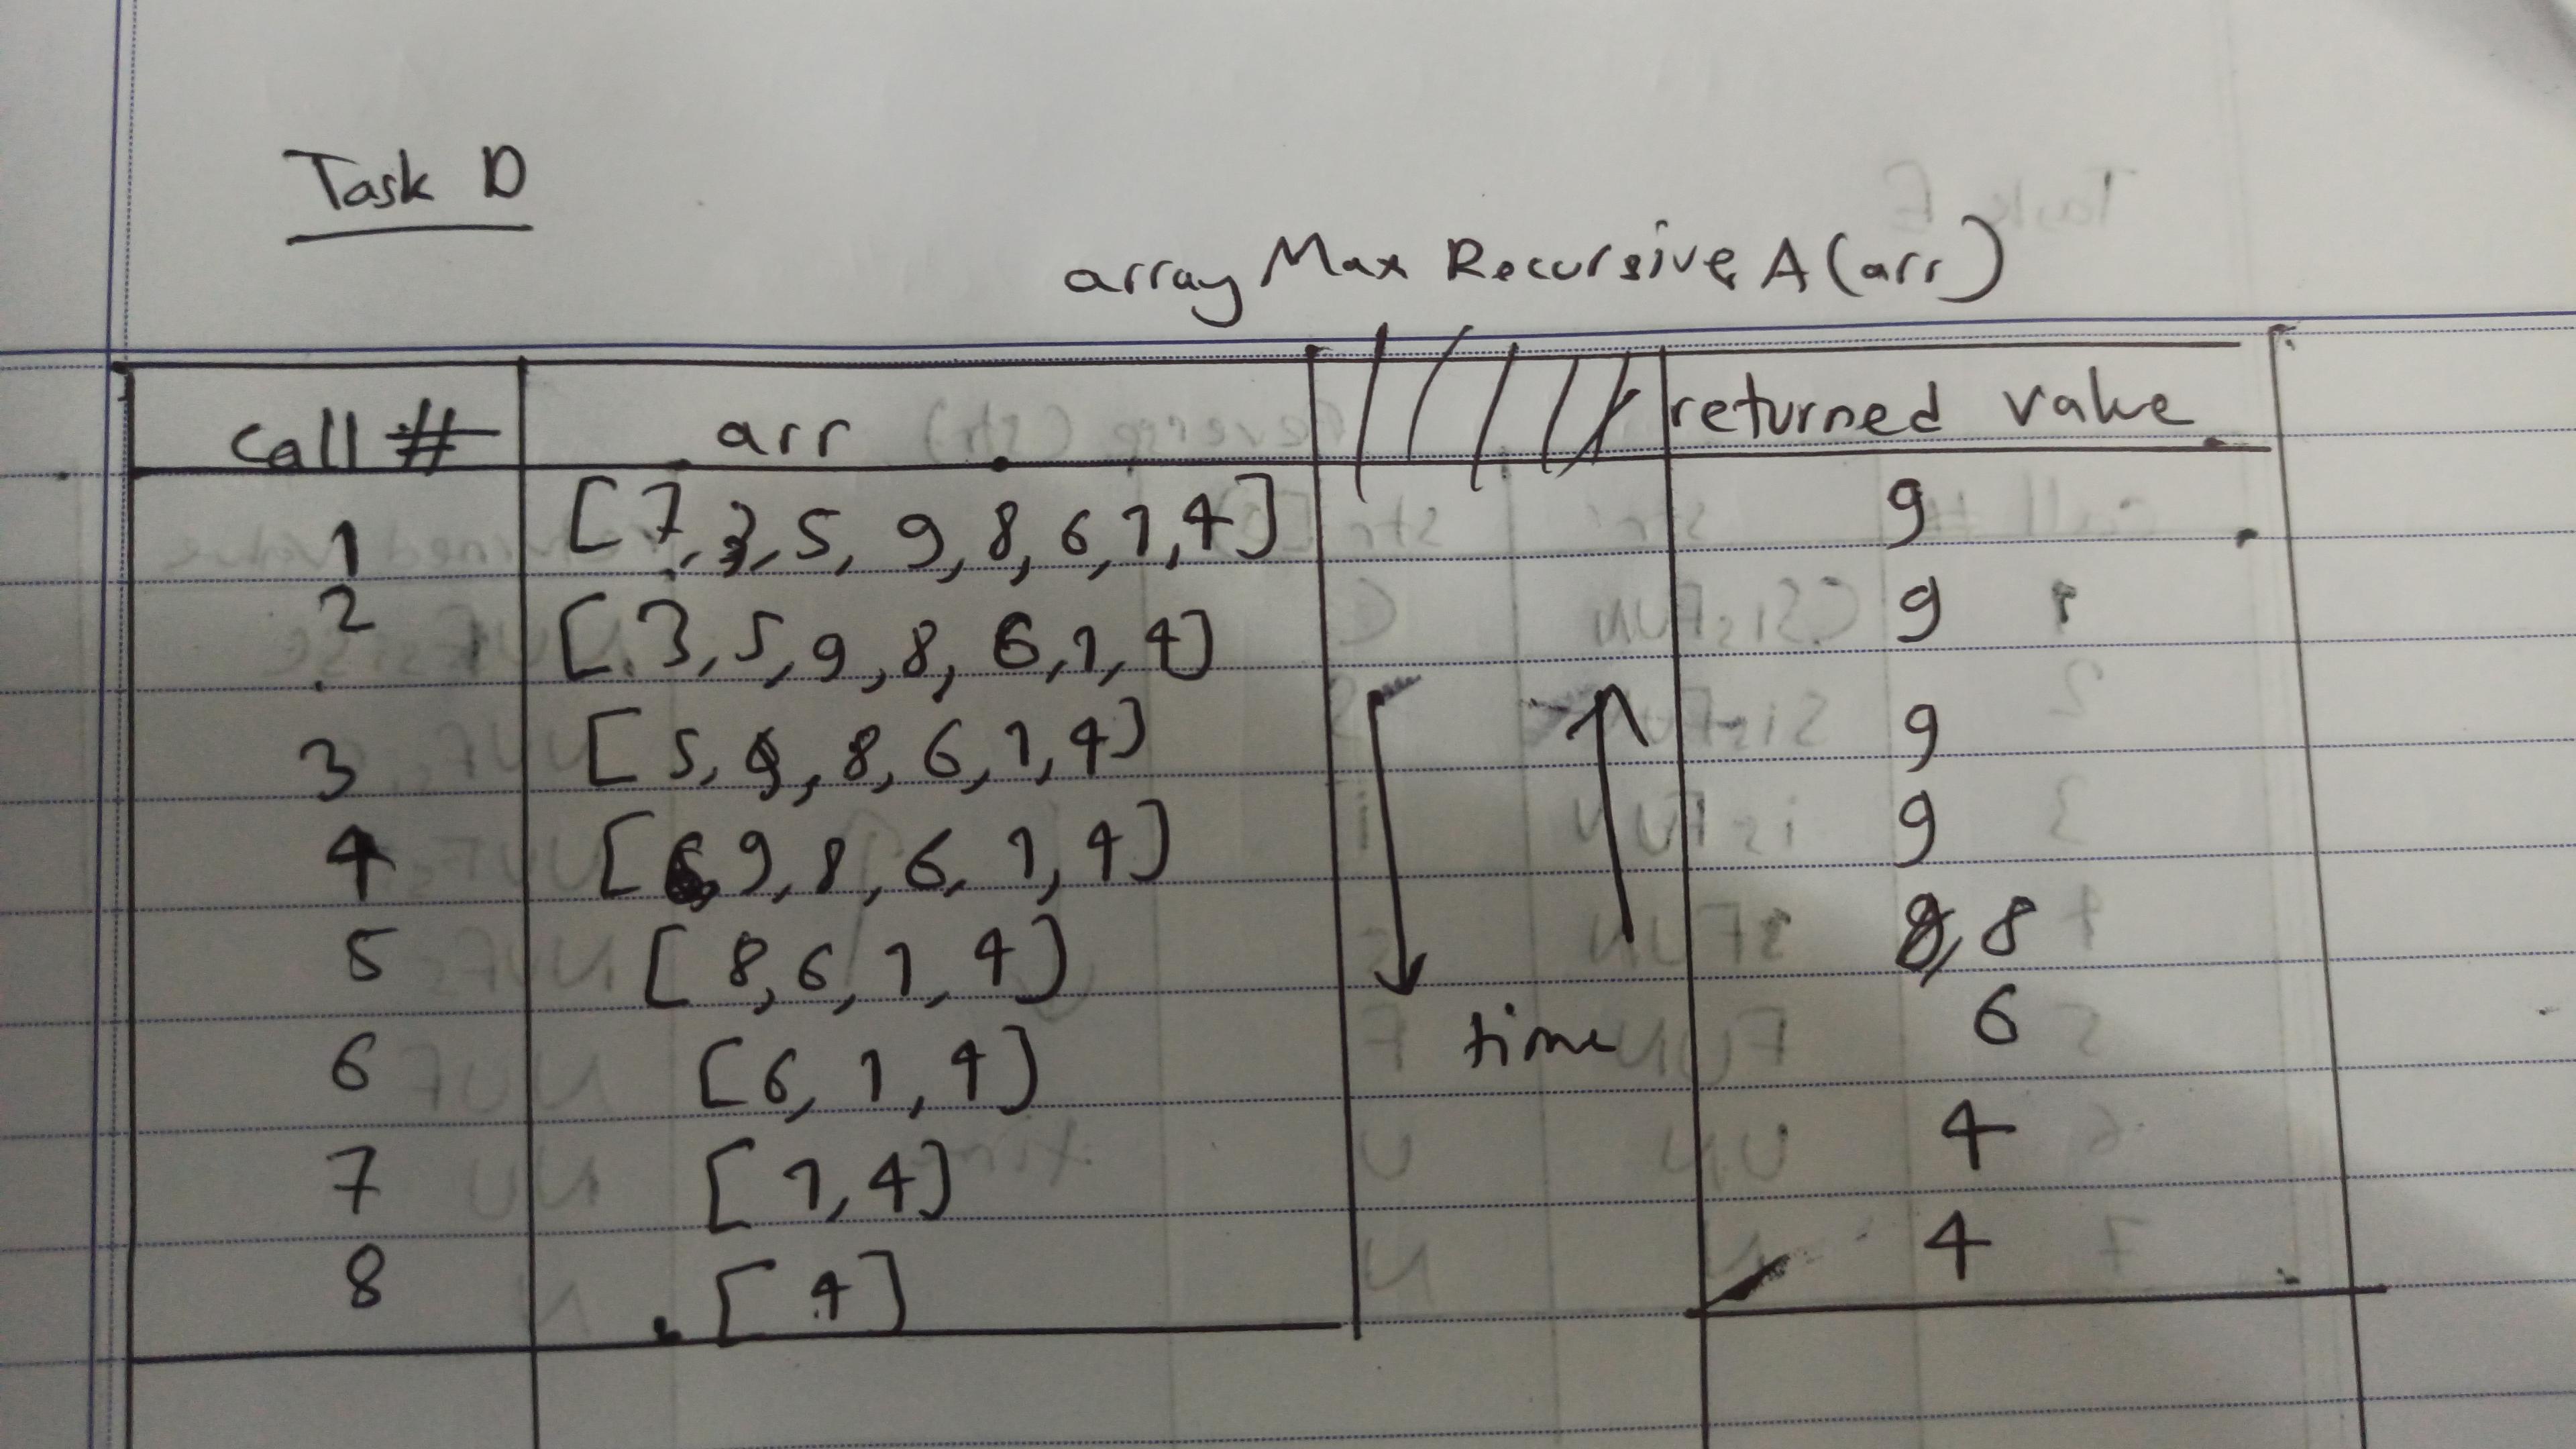 Task D
array Max Recursive A (arr)
call # arr returned value
1 [7, 3, 5, 9, 8, 6, 1, 4] 9
2 [3, 5, 9, 8, 6, 1, 4] 9
3 [5, 9, 8, 6, 1, 4] 9
4 [9, 8, 6, 1, 4] 9
5 [8, 6, 1, 4] 8
6 [6, 1, 4] time 6
7 [1, 4] 4
8 [4] 4